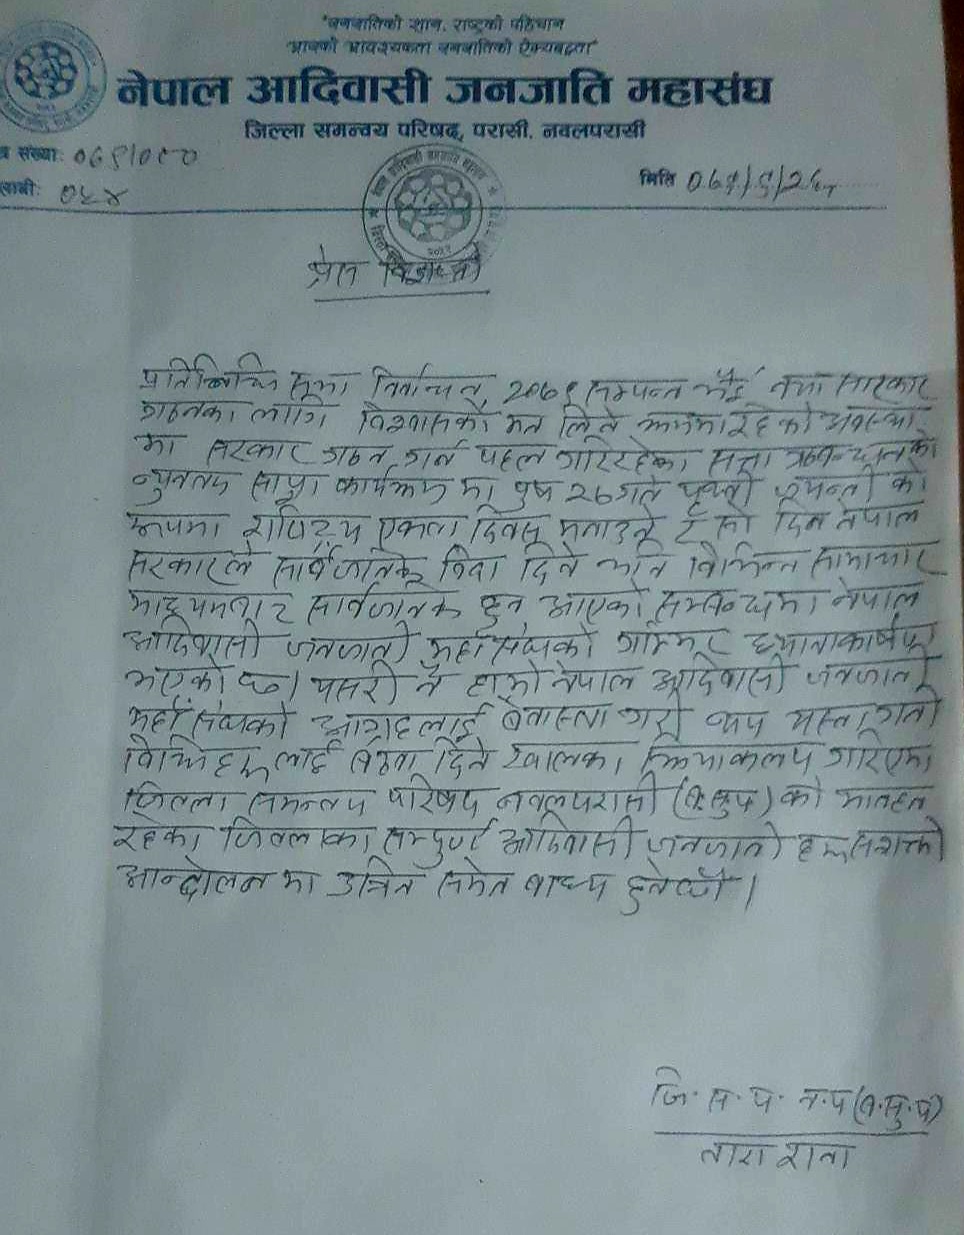 "जनजातिको शान, राष्ट्रको पहिचान
आजको आवश्यकता जनजातिको ऐक्यबद्धता"
नेपाल आदिवासी जनजाति महासंघ
जिल्ला समन्वय परिषद्, परासी, नवलपरासी
त्र संख्या: ०७९/०८०
लानी: ०५४
मिति ०७९/९/२५
प्रेस विज्ञप्ती
प्रतिनिधि सभा निर्वाचन, २०७९ सम्पन्न भई नया सरकार
गठनका लागि विश्वासको मत लिने क्रममा रहेको अवस्था
मा सरकार गठन गर्न पहल गरिरहेका सत्ता गठबन्धनको
न्युनतम साझा कार्यक्रम मा पुष २७ गते पृथ्वी जयन्ती को
रूपमा राष्ट्रिय एकता दिवस मनाउने र सो दिन नेपाल
सरकारले सार्वजनिक विदा दिने भनि विभिन्न सामाचार
माध्यमबाट सार्वजनिक हुन आएको सम्बन्धमा नेपाल
आदिवासी जनजाती महासंघको गम्भिर ध्यानाकर्षण
भएको छ। यसरी नै हाम्रो नेपाल आदिवासी जनजाती
महासंघको आग्रहलाई बेवास्ता गरी थप यस्ता गती
विधिहरूलाई बढवा दिने खालका क्रियाकलप गरिएमा
जिल्ला समन्वय परिषद नवलपरासी (ब.सु.प) को मातहत
रहेका जिल्लाका सम्पुर्ण आदिवासी जनजाती हरू सशक्त
आन्दोलन मा उत्रिन समेत बाध्य हुनेछौ।
जि. स. प. न. प (ब. सु. प)
तारा राना